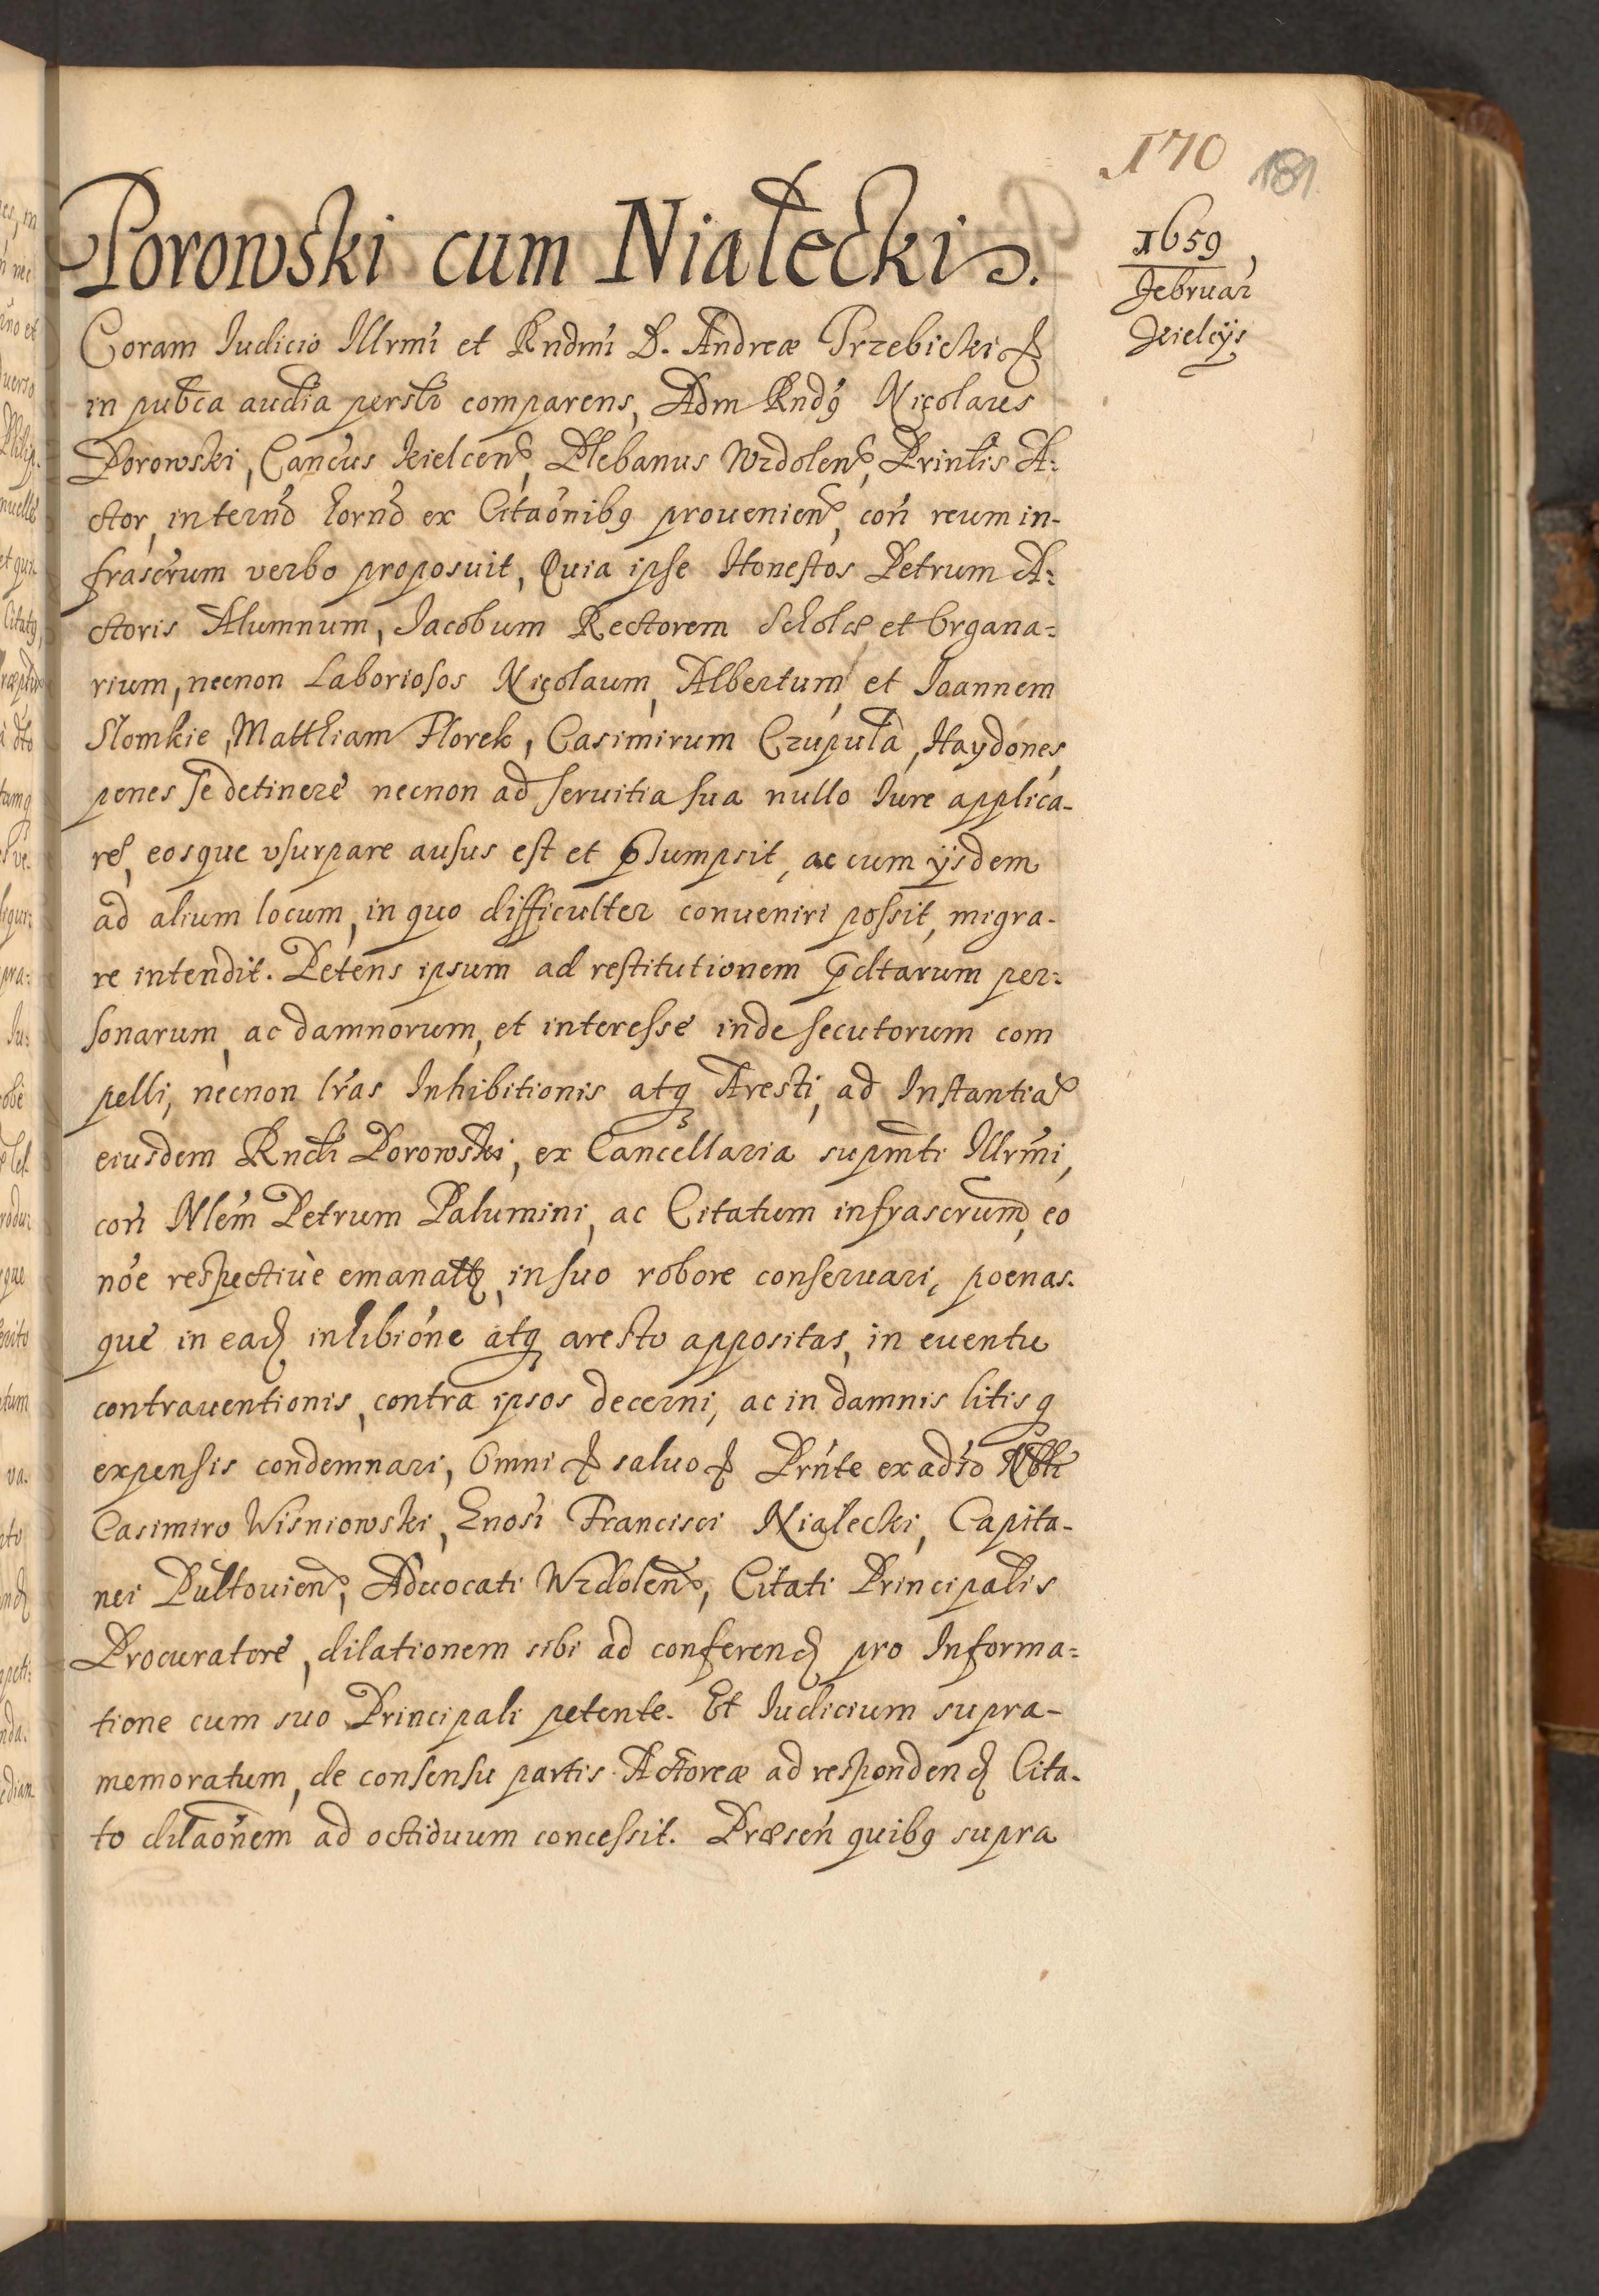 170 181.
Porowski cum Niałecki.
1659
Februar
Kielcijs
Coram Iudicio Illrmi et Rndmi D. Andreæ Trzebicki &
in pubca audia persłr comparens, Adm Rndq Nicolaus
Porowski, Cancus Kielcen, Plebanus Wzdolen, Printis A:
ctor, in termo hormo ex Citaonibq prouenien, con reum in-
frascrum verbo proposuit, Quia ipse Honestos Petrum A:
ctoris Alumnum, Jacobum Rectorem Scholæ et Organa:
rium, necnon Laboriosos Nicolaum, Albertum, et Joannem
Slomkie, Matthiam Florek, Casimirum Czupuła, Haydones,
penes se detinere necnon ad seruitia sua nullo Iure applica-
re, eosque vsurpare ausus est et psumpsit, ac cum ijsdem
ad alium locum, in quo difficulter conueniri possit, migra-
re intendit. Petens ipsum ad restitutionem pdtarum per:
sonarum, ac damnorum, et interesse inde secutorum com
pelli, necnon lras Inhibitionis atq Aresti, ad Instantia
eiusdem Rndi Porowski, ex Cancellaria supmti Illrmi,
con Nlem Petrum Palumini, ac Citatum infrascrum, eo
noe respectiuè emanat, in suo robore conseruari, poenas-
que in ead inhibione atq aresto appositas, in euentu
contrauentionis, contra ipsos decerni, ac in damnis litisq
expensis condemnari, Omni & saluo & Prnte ex adso Nbli
Casimiro Wisniowski, Gnosi Francisci Niałecki, Capita-
nei Pultouien, Aduocati Wzdolen, Citati Principalis
Procuratore, dilationem sibi ad conferend pro Informa:
tione cum suo Principali petente. Et Iudicium supra-
memoratum, de consensu partis Actoreæ ad respondend Cita-
to dilaonem ad octiduum concessit. Præsen quibq supra